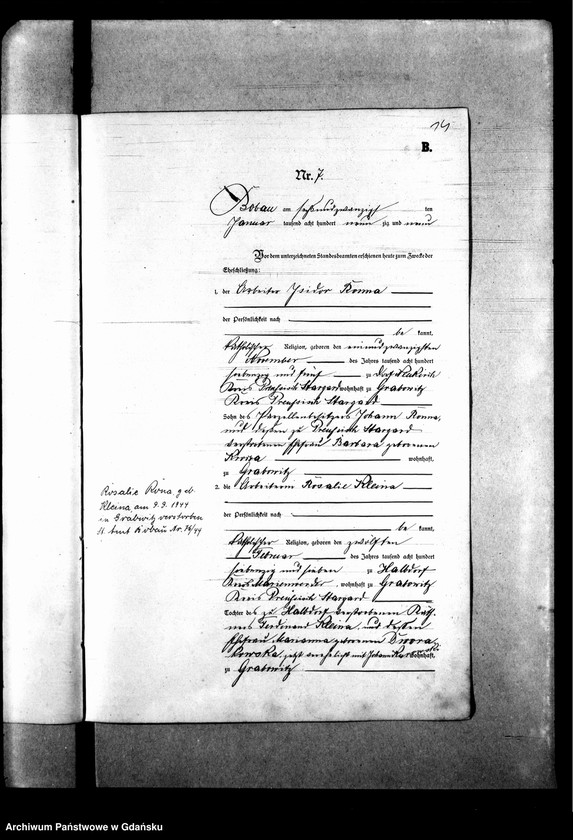 14
B.
Nr. 7.
Bobau am sechsundzwanzigsten
Januar tausend acht hundert neunzig und neun
Vor dem unterzeichneten Standesbeamten erschienen heute zum Zwecke der
Eheschließung:
1. der Arbeiter Isidor Ronna
der Persönlichkeit nach
bekannt,
katholischer Religion, geboren den einundzwanzigsten
November des Jahres tausend acht hundert
siebenzig und fünf zu Dorf
Kreis Preußisch Stargard wohnhaft zu Grabowitz
Kreis Preußisch Stargard
Sohn des Parzellenbesitzers Johann Ronna,
und dessen zu Preußisch Stargard
verstorbenen Ehefrau Barbara geborenen
wohnhaft,
zu Grabowitz
2. die Arbeiterin Rosalie Kleina
der Persönlichkeit nach
bekannt,
katholischer Religion, geboren den zwölften
Februar des Jahres tausend acht hundert
siebenzig und sieben zu Halbdorf
Kreis Marienwerder, wohnhaft zu Grabowitz
Kreis Preußisch Stargard
Tochter des zu Halbdorf verstorbenen
Ferdinand Kleina, und dessen
Ehefrau Marianna geborenen
jetzt verehelicht mit Johann wohnhaft,
zu Grabowitz
Rosalie Rona geb.
Kleina am 9.9.1944
in Grabowitz verstorben
St. Amt Bobau Nr. 76/44
Archiwum Państwowe w Gdańsku